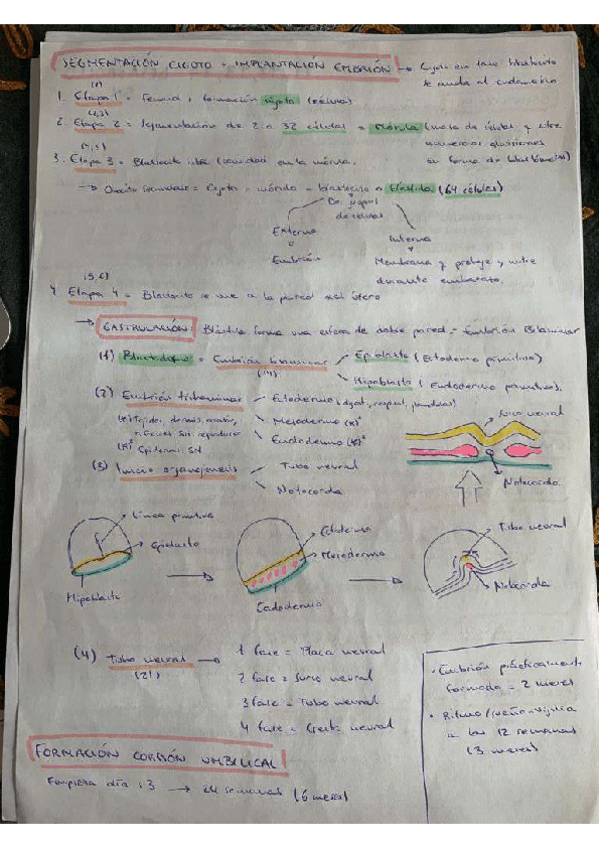 SEGMENTACIÓN CIGOTO + IMPLANTACIÓN EMBRIÓN → Cigoto en fase blastocito
se muda al endometrio
(1)
1. Etapa 1 = Fecund. y formación cigoto (célula)
(2,3)
2. Etapa 2 = Segmentación de 2 a 32 células = Mórula (masa de células y
numerosas divisiones
en forma de blastómeros)
3. Etapa 3 = Blastocito libre en la mórula.
→ Ovocito secundario = Cigoto = mórula = blastocito = blástula (64 células)
de células
Externa
Interna
Embrión
Membrana y protege y nutre
durante embarazo.
(5,6)
4. Etapa 4 = Blastocito se une a la pared del útero
→ GASTRULACIÓN: Blástula forma una esfera de doble pared = Embrión Bilaminar
(1) = Embrión bilaminar
Epiblasto (Ectodermo primitivo)
(14)
Hipoblasto (Endodermo primitivo).
(2) Embrión trilaminar
Ectodermo
Mesodermo
Endodermo
Surco neural
Notocorda
(3) Inicio organogénesis
Tubo neural
Notocorda
Línea primitiva
Epiblasto
Hipoblasto
Ectodermo
Mesodermo
Endodermo
Tubo neural
Notocorda
(4) Tubo neural →
(21)
1 fase = Placa neural
2 fase = Surco neural
3 fase = Tubo neural
4 fase = Cresta neural
• Embrión prácticamente
formado = 2 meses
• Ritmo/sueño-vigilia
a las 12 semanas
(3 meses)
FORMACIÓN CORDÓN UMBILICAL
Empieza día 13 → 24 semanas (6 meses)